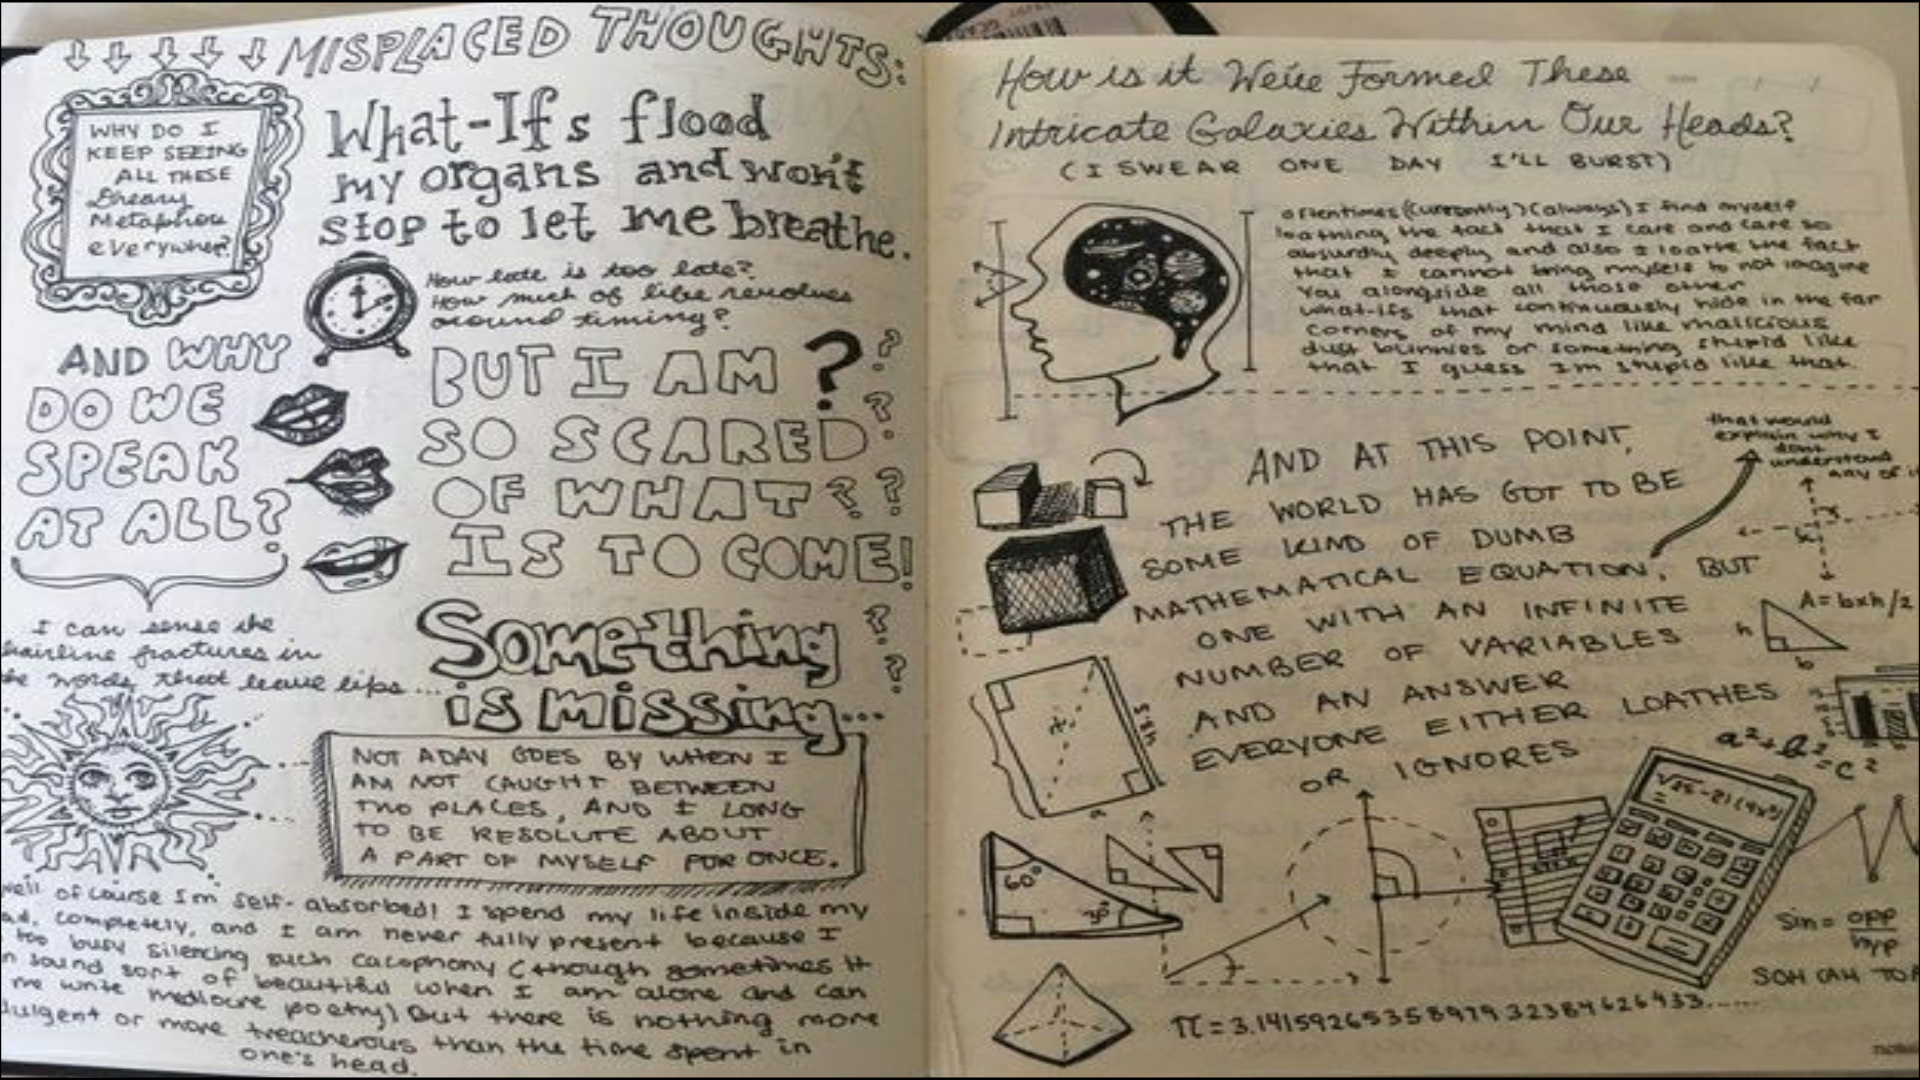 MISPLACED THOUGHTS:
WHY DO I
KEEP SEEING
ALL THESE
Dreary
Metaphors
everywhere?
What-Ifs flood
my organs and won't
stop to let me breathe.
How late is too late?
How much of life revolves
around timing?
AND WHY
DO WE
SPEAK
AT ALL?
BUT I AM ? ?
SO SCARED ?
OF WHAT ? ?
IS TO COME!
I can sense the
hairline fractures in
the words that leave lips...
Something ?
is missing... ?
NOT A DAY GOES BY WHEN I
AM NOT CAUGHT BETWEEN
TWO PLACES, AND I LONG
TO BE RESOLUTE ABOUT
A PART OF MYSELF FOR ONCE.
well of course I'm self-absorbed! I spend my life inside my
completely, and I am never fully present because I
too busy silencing such cacophony (though sometimes it
sound sort of beautiful when I am alone and can
me write mediocre poetry) But there is nothing more
or more treacherous than the time spent in
one's head.
How is it We've Formed These
Intricate Galaxies Within Our Heads?
(I SWEAR ONE DAY I'LL BURST)
oftentimes (currently) (always) I find myself
loathing the fact that I care and care so
absurdly deeply and also I loathe the fact
that I cannot bring myself to not imagine
you alongside all those other
what-ifs that continuously hide in the far
corners of my mind like malicious
dust bunnies or something stupid like
that I guess I'm stupid like that.
AND AT THIS POINT,
THE WORLD HAS GOT TO BE
SOME KIND OF DUMB
MATHEMATICAL EQUATION, BUT
ONE WITH AN INFINITE
NUMBER OF VARIABLES
AND AN ANSWER
EVERYONE EITHER LOATHES
OR IGNORES
that would
explain why I
dont
understand
any of
A=bxh/2
h
b
a²+b²
=c²
60°
30°
Sin= opp
hyp
SOH CAH
π=3.1415926535897932384626433......